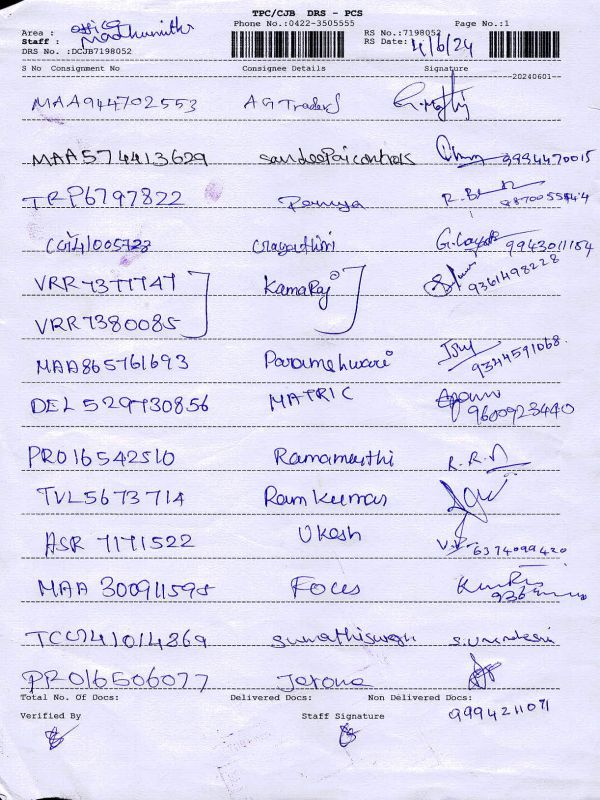 TPC/CJB DRS - PCS
Phone No.:0422-3505555 Page No.:1
Area : office
Staff : Madhumitha RS No.:7198052
DRS No. :DCJB7198052 RS Date: 4/6/24
S No Consignment No Consignee Details Signature
20240601
MAA944702553 AG Traders
MAA574413629 sandeepaicontrols 9994470015
TRP6797822 Ramya
gayathiri 9943011184
VRR7377747 Kamaraj 9361498228
VRR7380085
MAA865761693 Parameshwari 9344591068
DEL529730856 MATRIC 9600923440
PRO16542510 Ramamurthi R.R.
TVL5673714 Ramkumar
ASR 7171522 Ukesh 6374099420
MAA 300911595 Foces
TCC141014269
PRO16506077 Jerome
Total No. Of Docs: Delivered Docs: Non Delivered Docs:
9994211071
Verified By Staff Signature